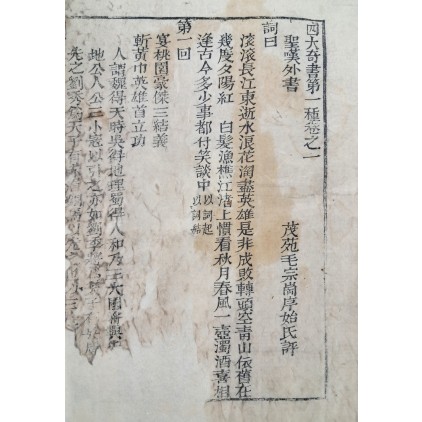 四大奇書第一種卷之一
聖嘆外書
茂苑毛宗崗序始氏評
詞曰
滾滾長江東逝水浪花淘盡英雄是非成敗轉頭空青山依舊在
幾度夕陽紅 白髮漁樵江渚上慣看秋月春風一壺濁酒喜相
逢古今多少事都付笑談中以詞起以詞結
第一回
宴桃園豪傑三結義
斬黃巾英雄首立功
人謂魏得天時吳得地理蜀得人和乃三大國
地公人公三小寇以引之亦如劉
先之劉秀